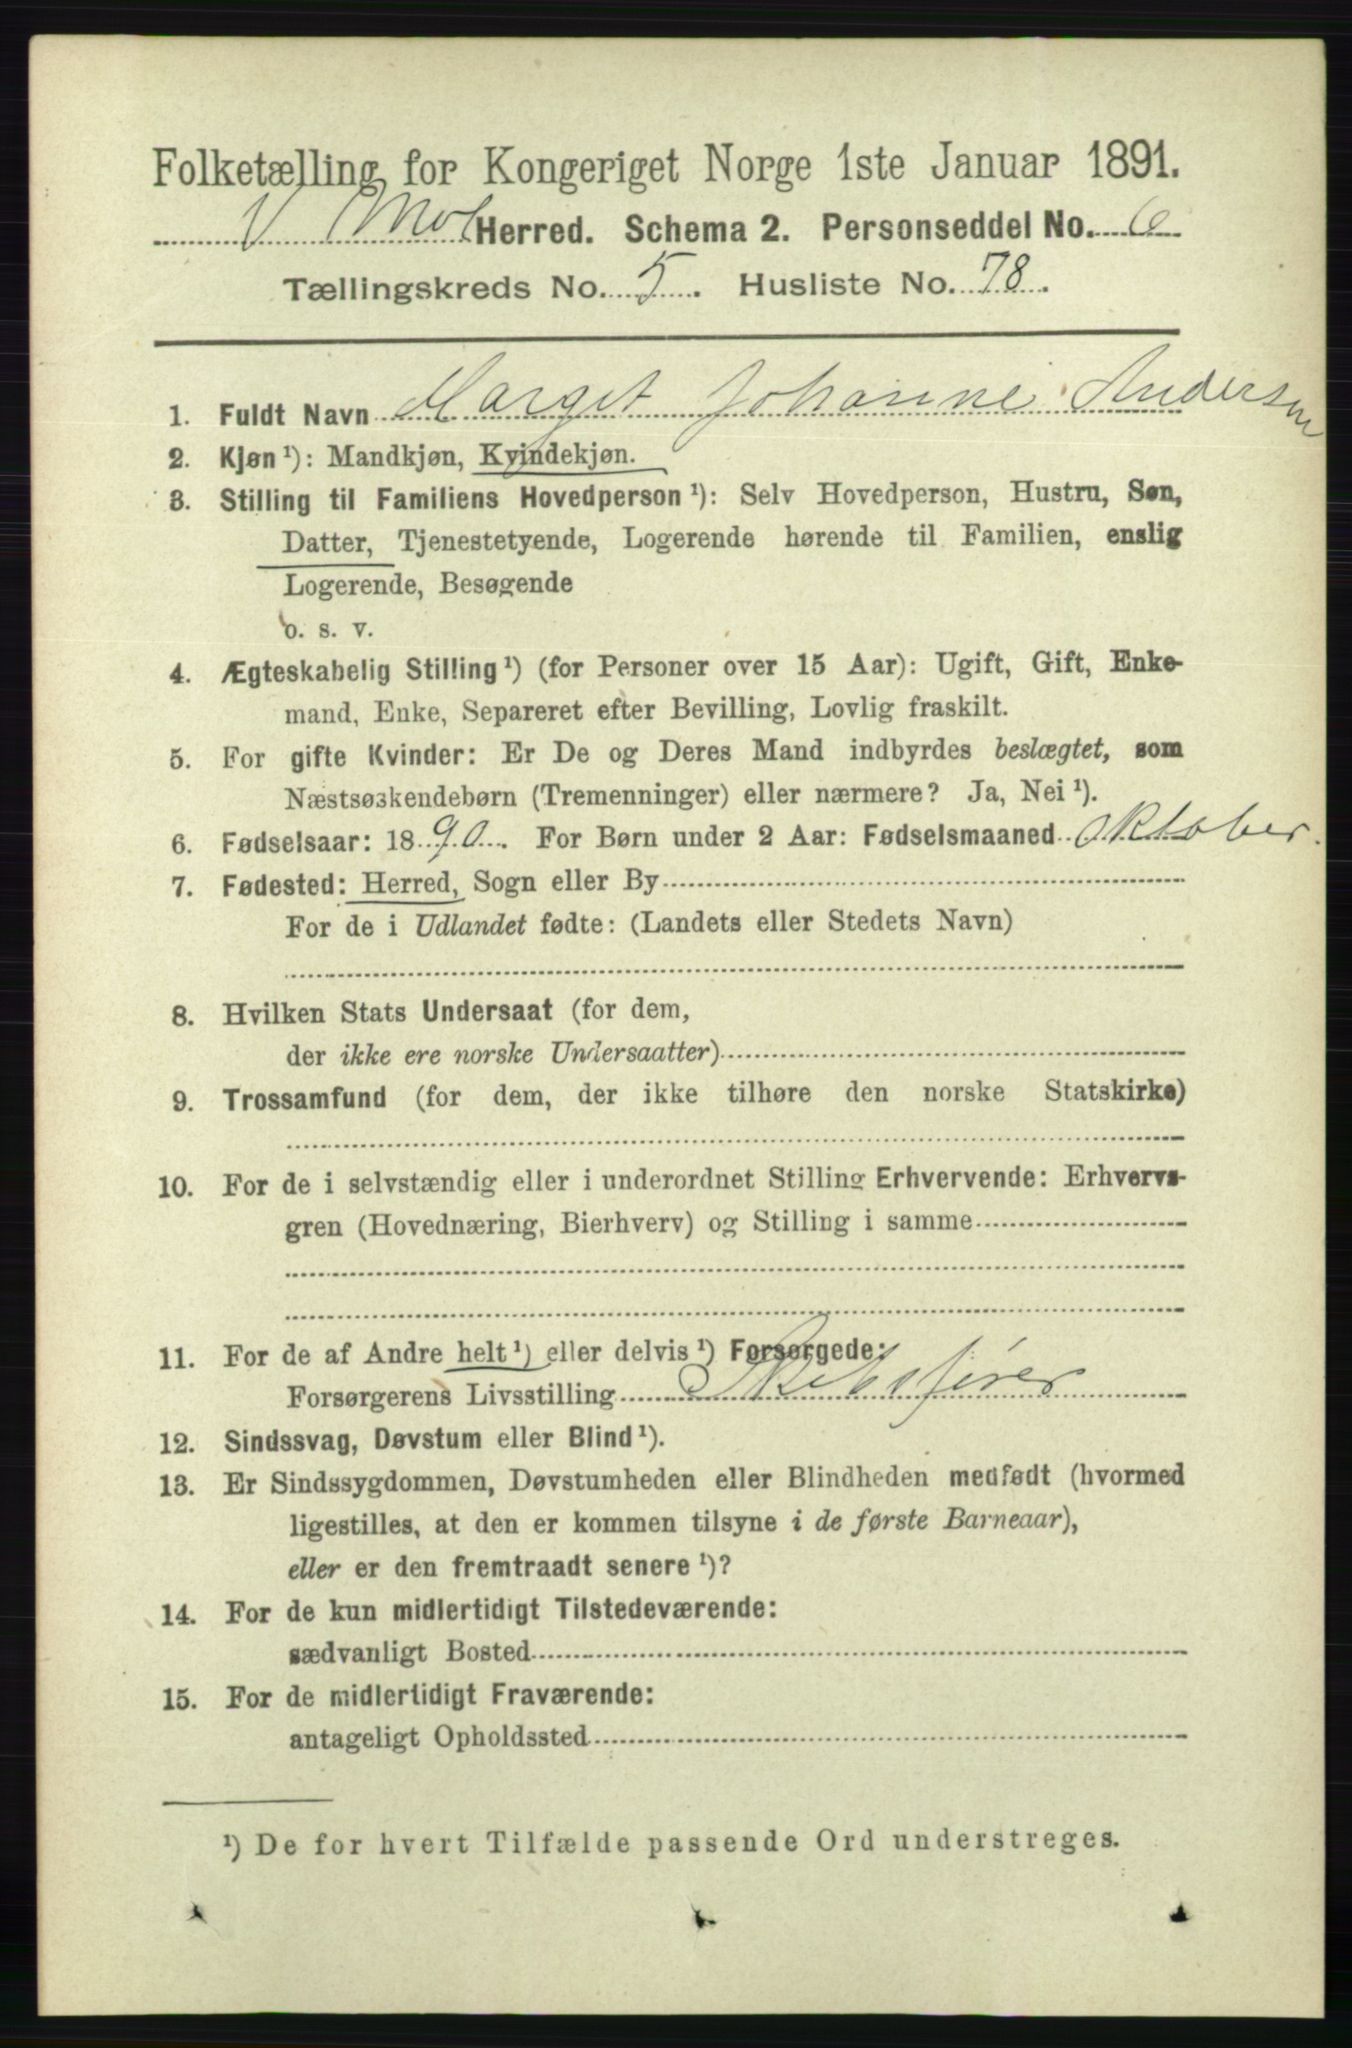 Folketælling for Kongeriget Norge 1ste Januar 1891.
V Mol Herred. Schema 2. Personseddel No. 6
Tællingskreds No. 5. Husliste No. 78.
1. Fuldt Navn Marget Johanne Andersen
2. Kjøn¹): Mandkjøn, Kvindekjøn.
3. Stilling til Familiens Hovedperson¹): Selv Hovedperson, Hustru, Søn,
Datter, Tjenestetyende, Logerende hørende til Familien, enslig
Logerende, Besøgende
o. s. v.
4. Ægteskabelig Stilling¹) (for Personer over 15 Aar): Ugift, Gift, Enke-
mand, Enke, Separeret efter Bevilling, Lovlig fraskilt.
5. For gifte Kvinder: Er De og Deres Mand indbyrdes beslægtet, som
Næstsøskendebørn (Tremenninger) eller nærmere? Ja, Nei¹).
6. Fødselsaar: 1890. For Børn under 2 Aar: Fødselsmaaned oktober.
7. Fødested: Herred, Sogn eller By
For de i Udlandet fødte: (Landets eller Stedets Navn)
8. Hvilken Stats Undersaat (for dem,
der ikke ere norske Undersaatter)
9. Trossamfund (for dem, der ikke tilhøre den norske Statskirke)
10. For de i selvstændig eller i underordnet Stilling Erhvervende: Erhvervs-
gren (Hovednæring, Bierhverv) og Stilling i samme
11. For de af Andre helt¹) eller delvis¹) Forsørgede:
Forsørgerens Livsstilling Skibsfører
12. Sindssvag, Døvstum eller Blind¹).
13. Er Sindssygdommen, Døvstumheden eller Blindheden medfødt (hvormed
ligestilles, at den er kommen tilsyne i de første Barneaar),
eller er den fremtraadt senere¹)?
14. For de kun midlertidigt Tilstedeværende:
sædvanligt Bosted
15. For de midlertidigt Fraværende:
antageligt Opholdssted
¹) De for hvert Tilfælde passende Ord understreges.